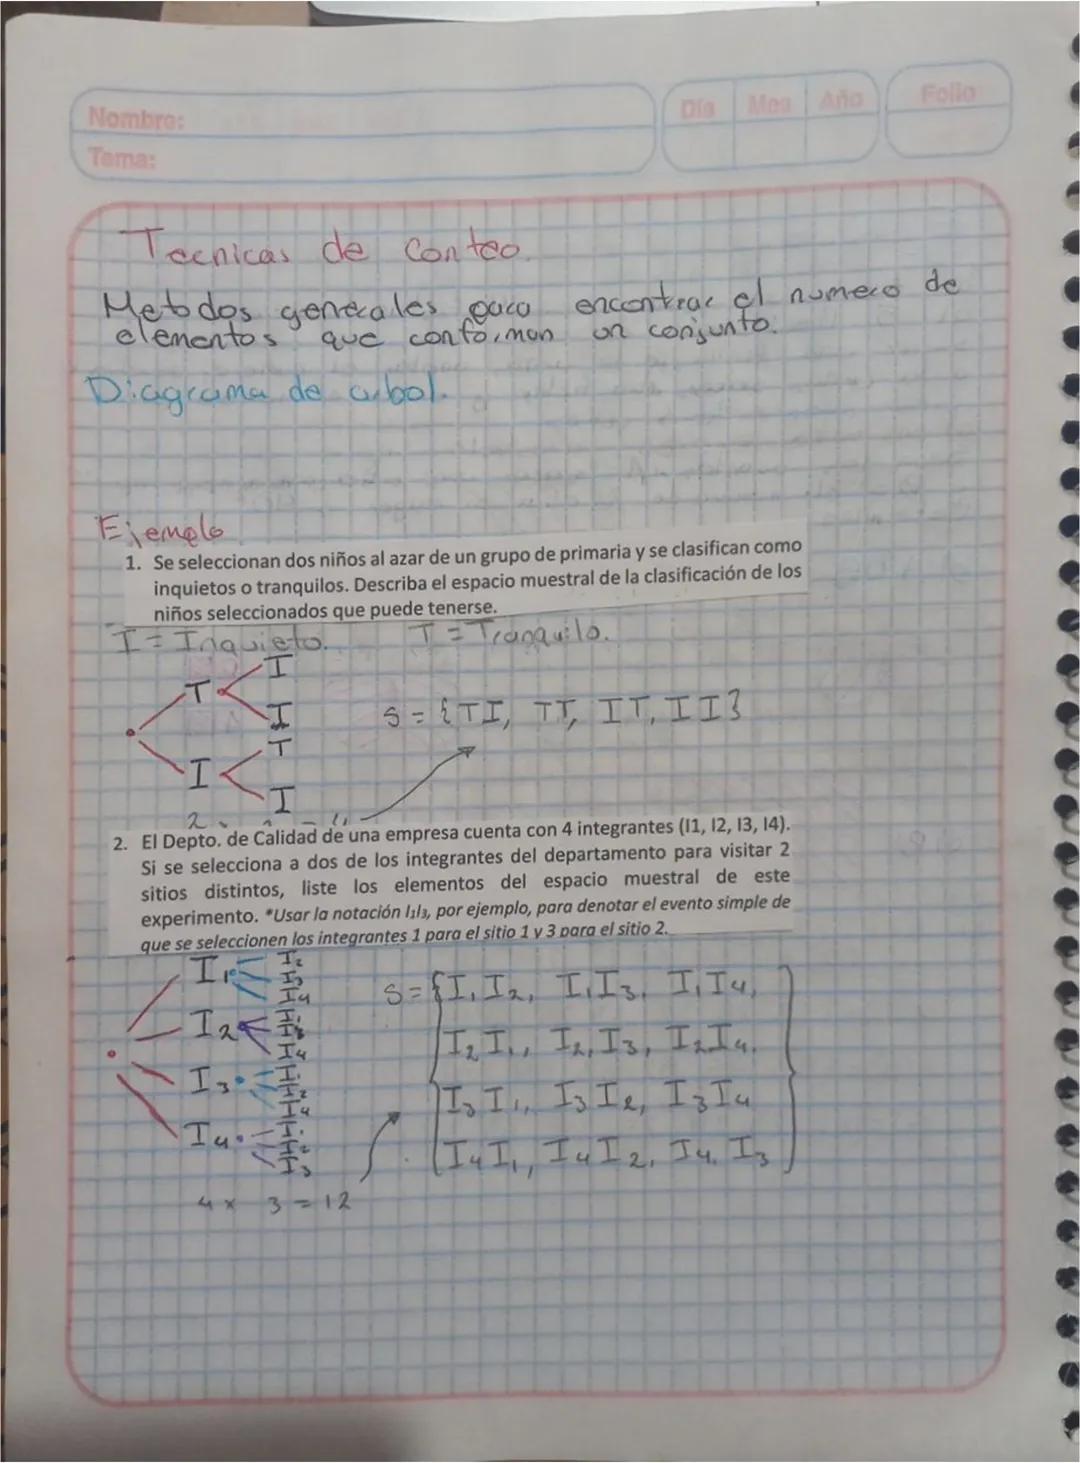 Nombre:
Tema:
Día Mes Año
Folio
Tecnicas de Conteo.
Metodos generales para encontrar el numero de
elementos que conforman un conjunto.
Diagrama de arbol.
Ejemplo
1. Se seleccionan dos niños al azar de un grupo de primaria y se clasifican como
inquietos o tranquilos. Describa el espacio muestral de la clasificación de los
niños seleccionados que puede tenerse.
I = Inquieto. T = Tranquilo.
T I
I
S = {TI, TT, IT, II}
I T
I
2. El Depto. de Calidad de una empresa cuenta con 4 integrantes (I1, I2, I3, I4).
Si se selecciona a dos de los integrantes del departamento para visitar 2
sitios distintos, liste los elementos del espacio muestral de este
experimento. *Usar la notación I₁I₃, por ejemplo, para denotar el evento simple de
que se seleccionen los integrantes 1 para el sitio 1 y 3 para el sitio 2.
I₁ I₂
I₃
I₄
I₂ I₁
I₃
I₄
I₃ I₁
I₂
I₄
I₄ I₁
I₂
I₃
S = {I₁I₂, I₁I₃, I₁I₄,
I₂I₁, I₂,I₃, I₂I₄.
I₃I₁, I₃I₂, I₃I₄
I₄I₁, I₄I₂, I₄. I₃}
4 x 3 = 12